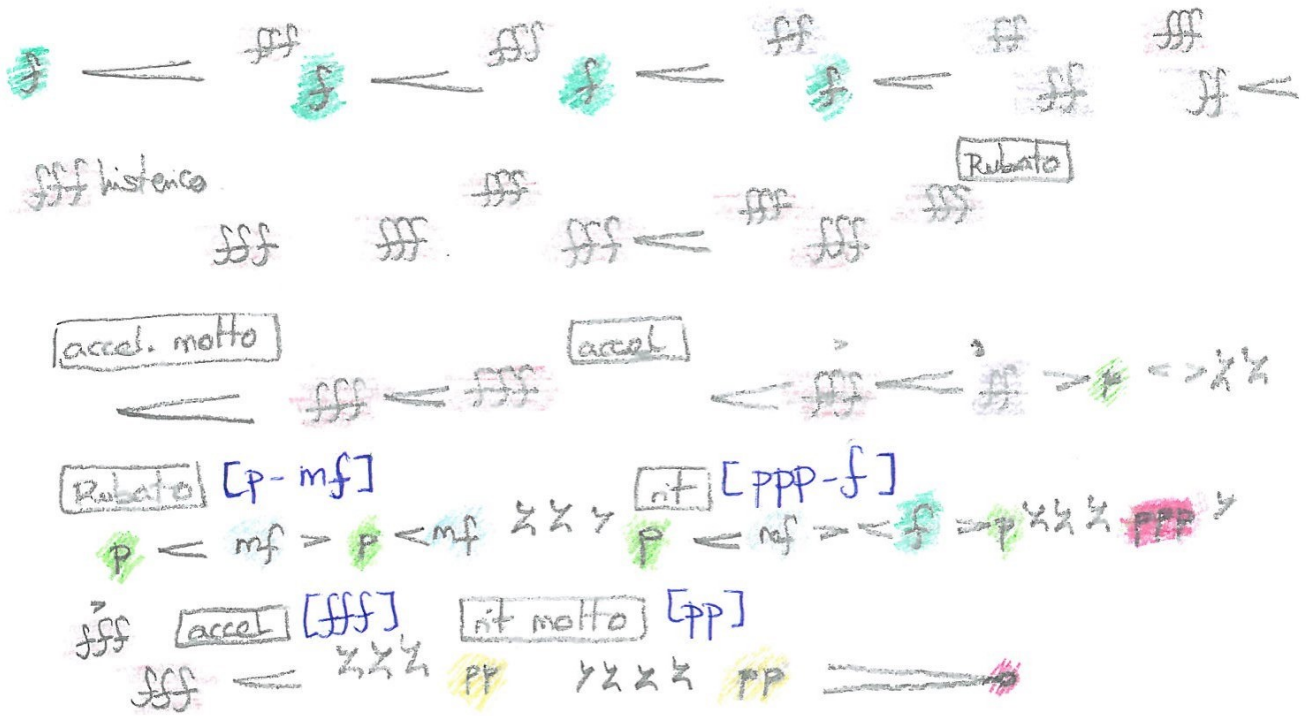 fff fff ff ff fff
f < f < f < f < ff ff <
Rubato
fff histerico fff fff fff
fff fff. fff < fff.
accel. molto accel
< fff < fff < fff < ff > p < >
Rubato [p-mf] rit [ppp-f]
p < mf > p < mf p < mf > < f > p ppp
fff accel [fff] rit molto [pp]
fff < pp pp